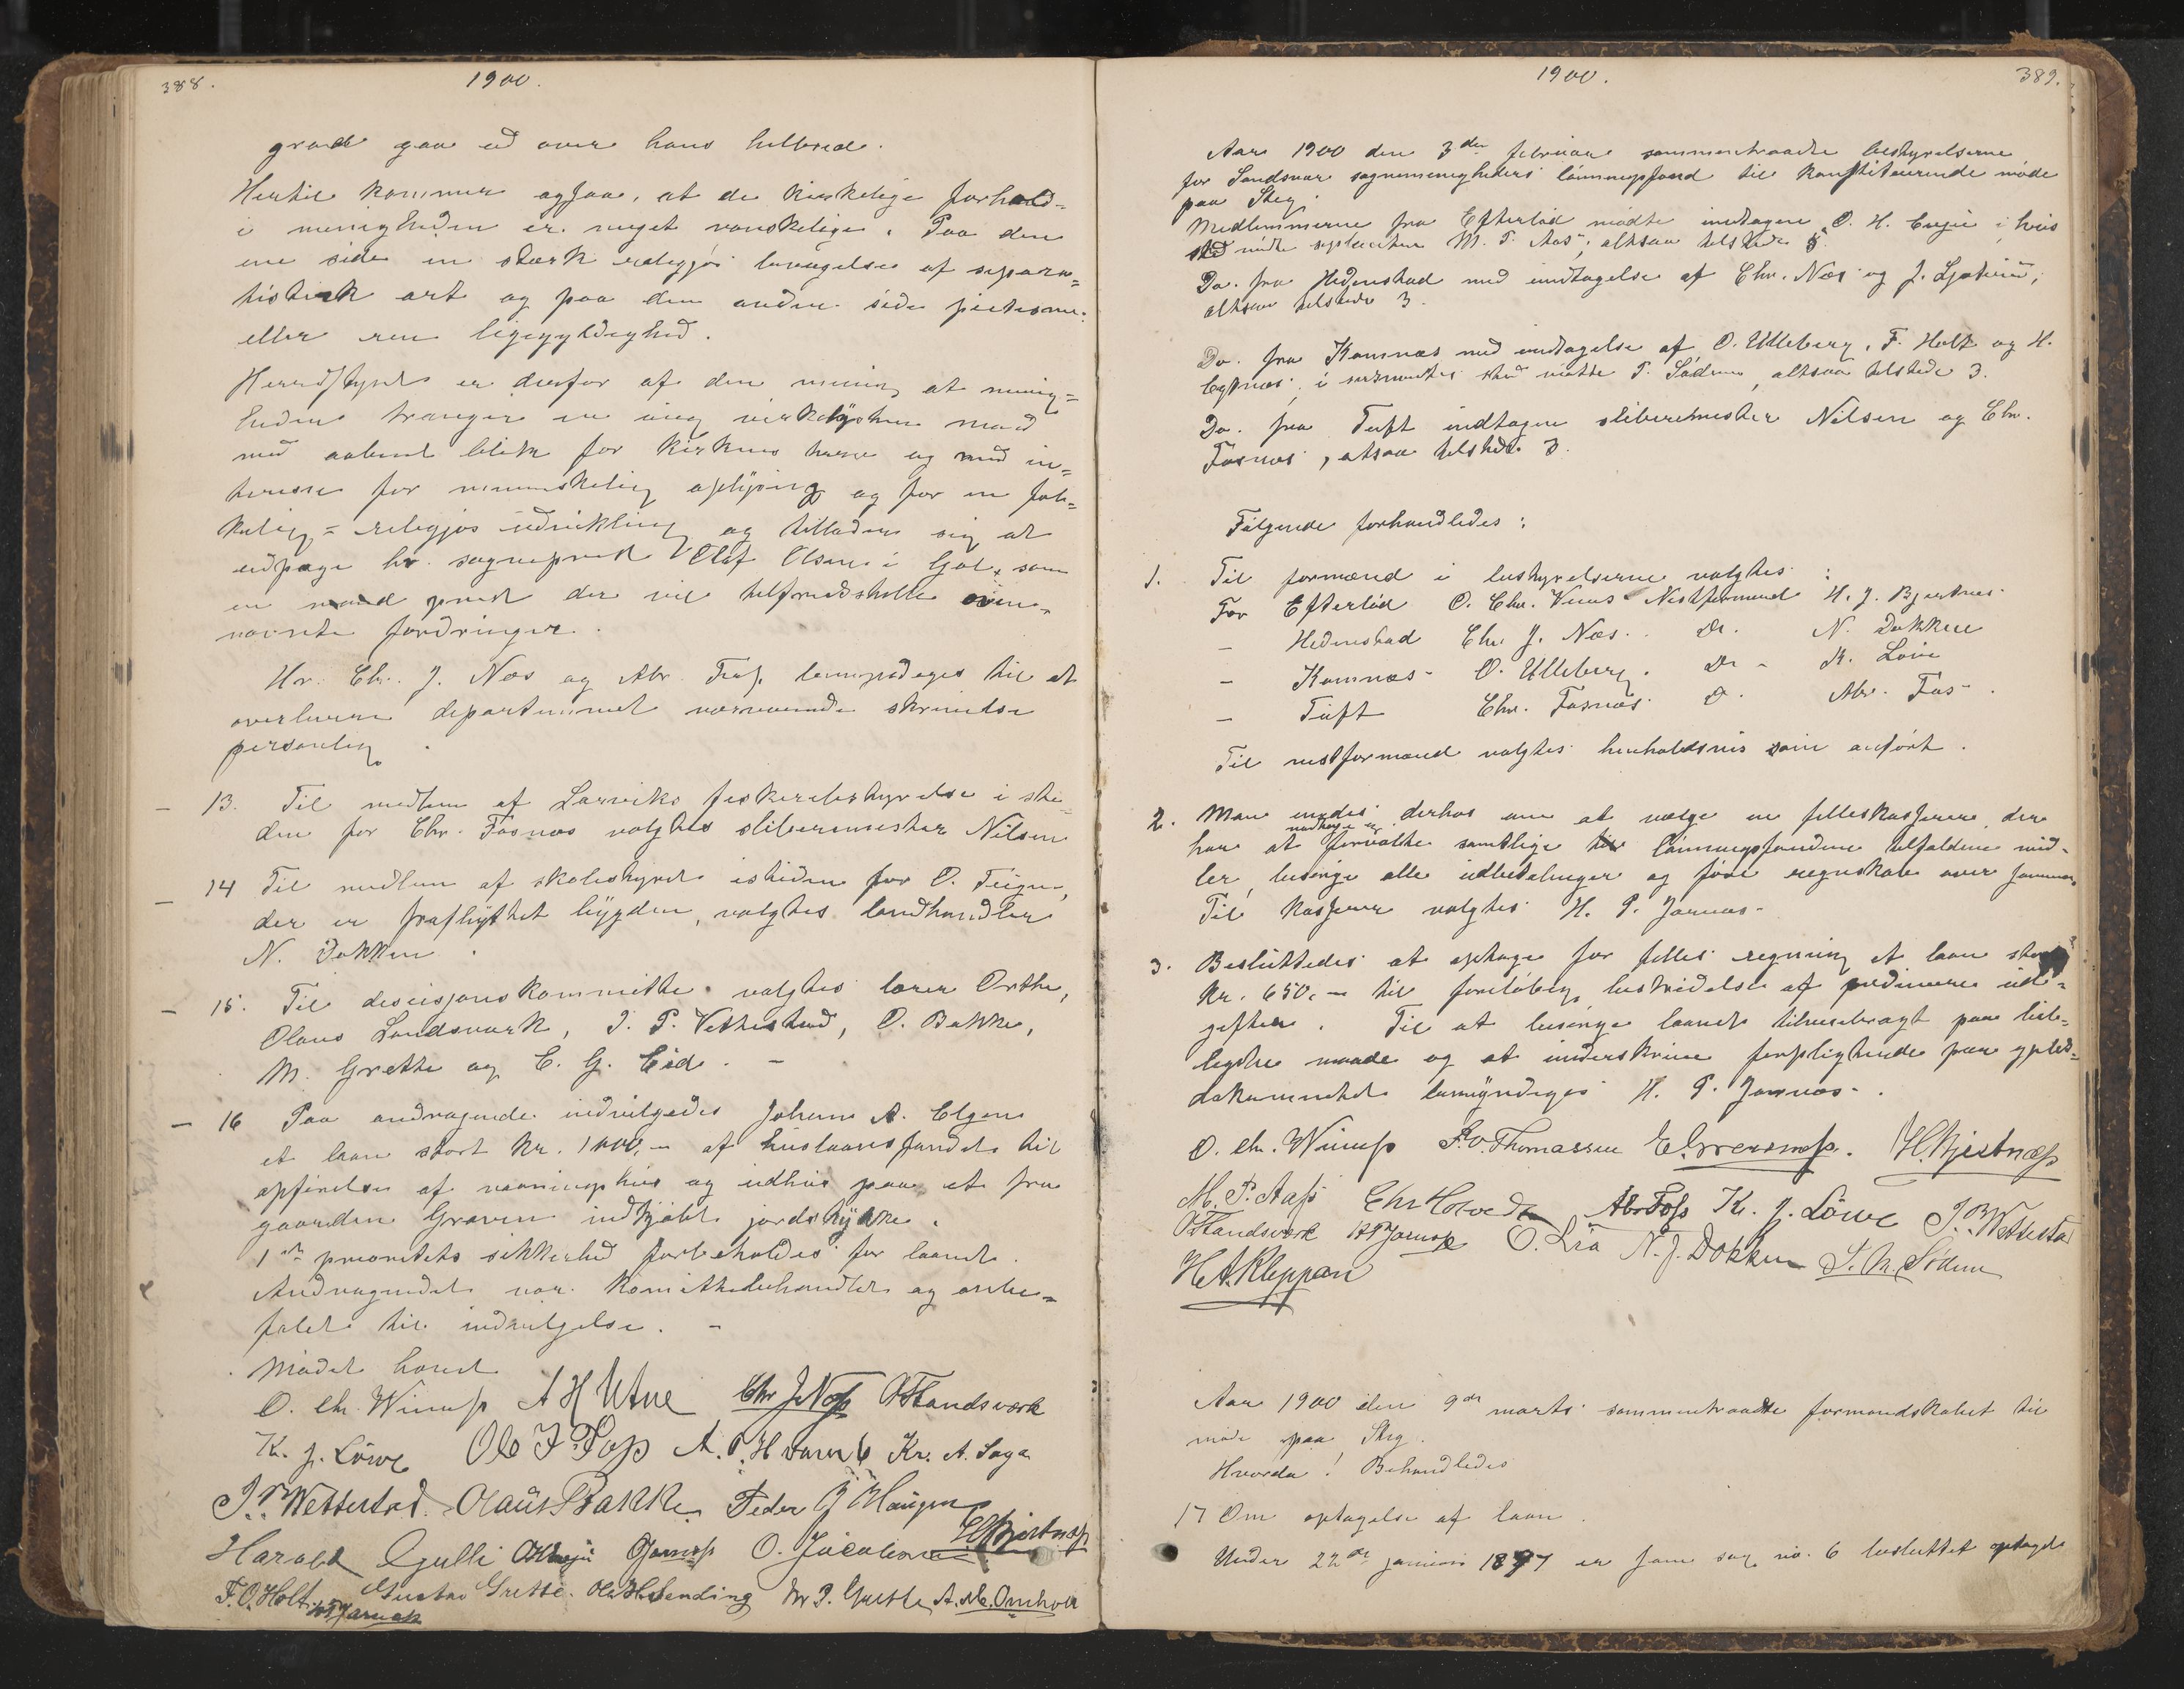 388.
1900.
grad gaa ud over hans helbred.
Hertil kommer ogsaa, at de kirkelige forhold=
i menigheden er meget vanskelige. Paa den
ene side en stærk religjøs bevægelse af separa=
tistisk art og paa den anden side pietisme
eller ren ligegyldighed.
Herredsstyret er derfor af den mening at menig=
heden trænger en ung virkelysten mand
med aabent blik for kirkens tarv og med in=
teresse for menneskelig oplysning og for en fol=
kelig = religjøs udvikling og tillader sig at
udpege hr. sogneprest Olaf Olsen i Gol, som
en mand prest der vil tilfredsstille oven=
nævnte fordringer.
Hr. Chr. J. Næs og Abr. Fosſ bemyndiges til at
overlevere departementet nærværende skrivelse
personlig.
– 13. Til medlem af Larviks fiskeribestyrelse i ste=
den for Chr. Fosnæs valgtes slibermester Nilsen
– 14 Til medlem af skolestyret isteden for O. Teigen,
der er fraflyttet bygden, valgtes landhandler
N. Dokken.
– 15. Til decisjonskommitte valgtes lærer Orthe,
Olaus Landsværk, J. P. Vettestad, O. Bakke,
M. Grette og C. G. Eid. –
– 16 Paa andragende indvilgedes Johan A. Elgen
et laan stort kr. 1000,– af huslaansfondet til
opførelse af vaaningshus og udhus paa et fra
gaarden Graven indkjøbt jordstykke.
1ste prioritets sikkerhed forbeholdes for laanet.
Andragendet var komittebehandlet og anbe=
falet til indvilgelse. –
Mødet hævet
O. Chr. Winness A H Utne Chr J. Næss O Landsværk
K. J. Löwe Ole J Foss A. O. Hvam Kr. A. Saga
J. P. Wettestad. Olaus Bakke Peder G Haugen
Harald Gulli Jarnæss O. Jacobsen H. Bjertnæss
F. O. Holt Gustav Grette. Ole H. Sending M P. Grette A. M. Omholt
H P Jarnæss
1900.
389.
Aar 1900 den 3die februar sammentraadte bestyrelserne
for Sandsvær sognemenigheders lønningsfond til konstituerende møde
paa Steg.
Medlemmerne fra Efteløt mødte undtagen O. H. i hvis
sted mødte suppleanten M. P. Aas, altsaa tilstede 5.
Do. fra Hedenstad med undtagelse af Chr. Næs og J.
altsaa tilstede 3.
Do. fra Komnæs med undtagelse af O. Ulleberg, F. Holt og H.
i sidstnævntes sted mødte P. Södem, altsaa tilstede 3.
Do. fra Tuft undtagen slibermester Nilsen og Chr.
Fosnæs, altsaa tilstede 3.
Følgende forhandledes:
1. Til formænd i bestyrelserne valgtes:
For Efteløt O. Chr. Vines Næstformand H. J. Bjertnes.
– Hedenstad Chr J. Næs. Do. N. Dokken
– Komnæs – O. Ulleberg. Do – K. Löve
– Tuft Chr. Fosnæs D. Abr. Fos.
Til næstformænd valgtes henholdsvis som anført.
2. Man enedes derhos om at vælge en felleskasserer, der
modtage og
har at forvalte samtlige lønningsfondene tilfaldene mid=
ler, besørge alle udbetalinger og føre regnskab over samme.
Til kasserer valgtes H. P. Jarnæs.
3. Besluttedes at optage for felles regning et laan stort
kr. 650,– til foreløbig bestridelse af pedinære ud=
gifter. Til at besørge laanet tilveiebragt paa bele=
ligste maade og at underskrive forpligtende paa gjelds=
dokumentet bemyndiges H. P. Jarnæs.
O. Chr. Winness P. O. Thomassen H. Bjertnæss
M. P. Aass Chr Hotvedt Abr Foss K. J. Löwe J. P. Wettestad
O Landsværk H P Jarnæss O. Lia N. J. Dokken P. M. Södem
H. A. Kleppan
Aar 1900 den 9de marts sammentraadte formandskabet til
møde paa Steg.
Hvorda! Behandledes
17 Om optagelse af laan.
Under 22de januar 1897 er sam sag no. 6 besluttet optaget